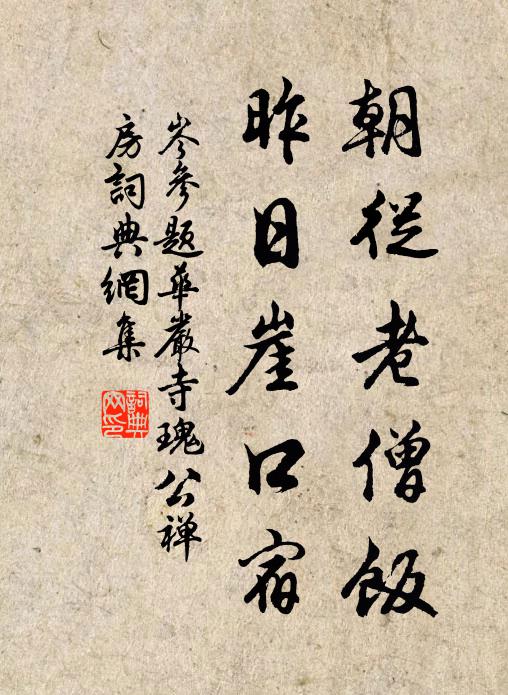 朝從老僧飯
昨日崖口宿
岑參題華嚴寺瑰公禅
房詞典網集
詞典
网印